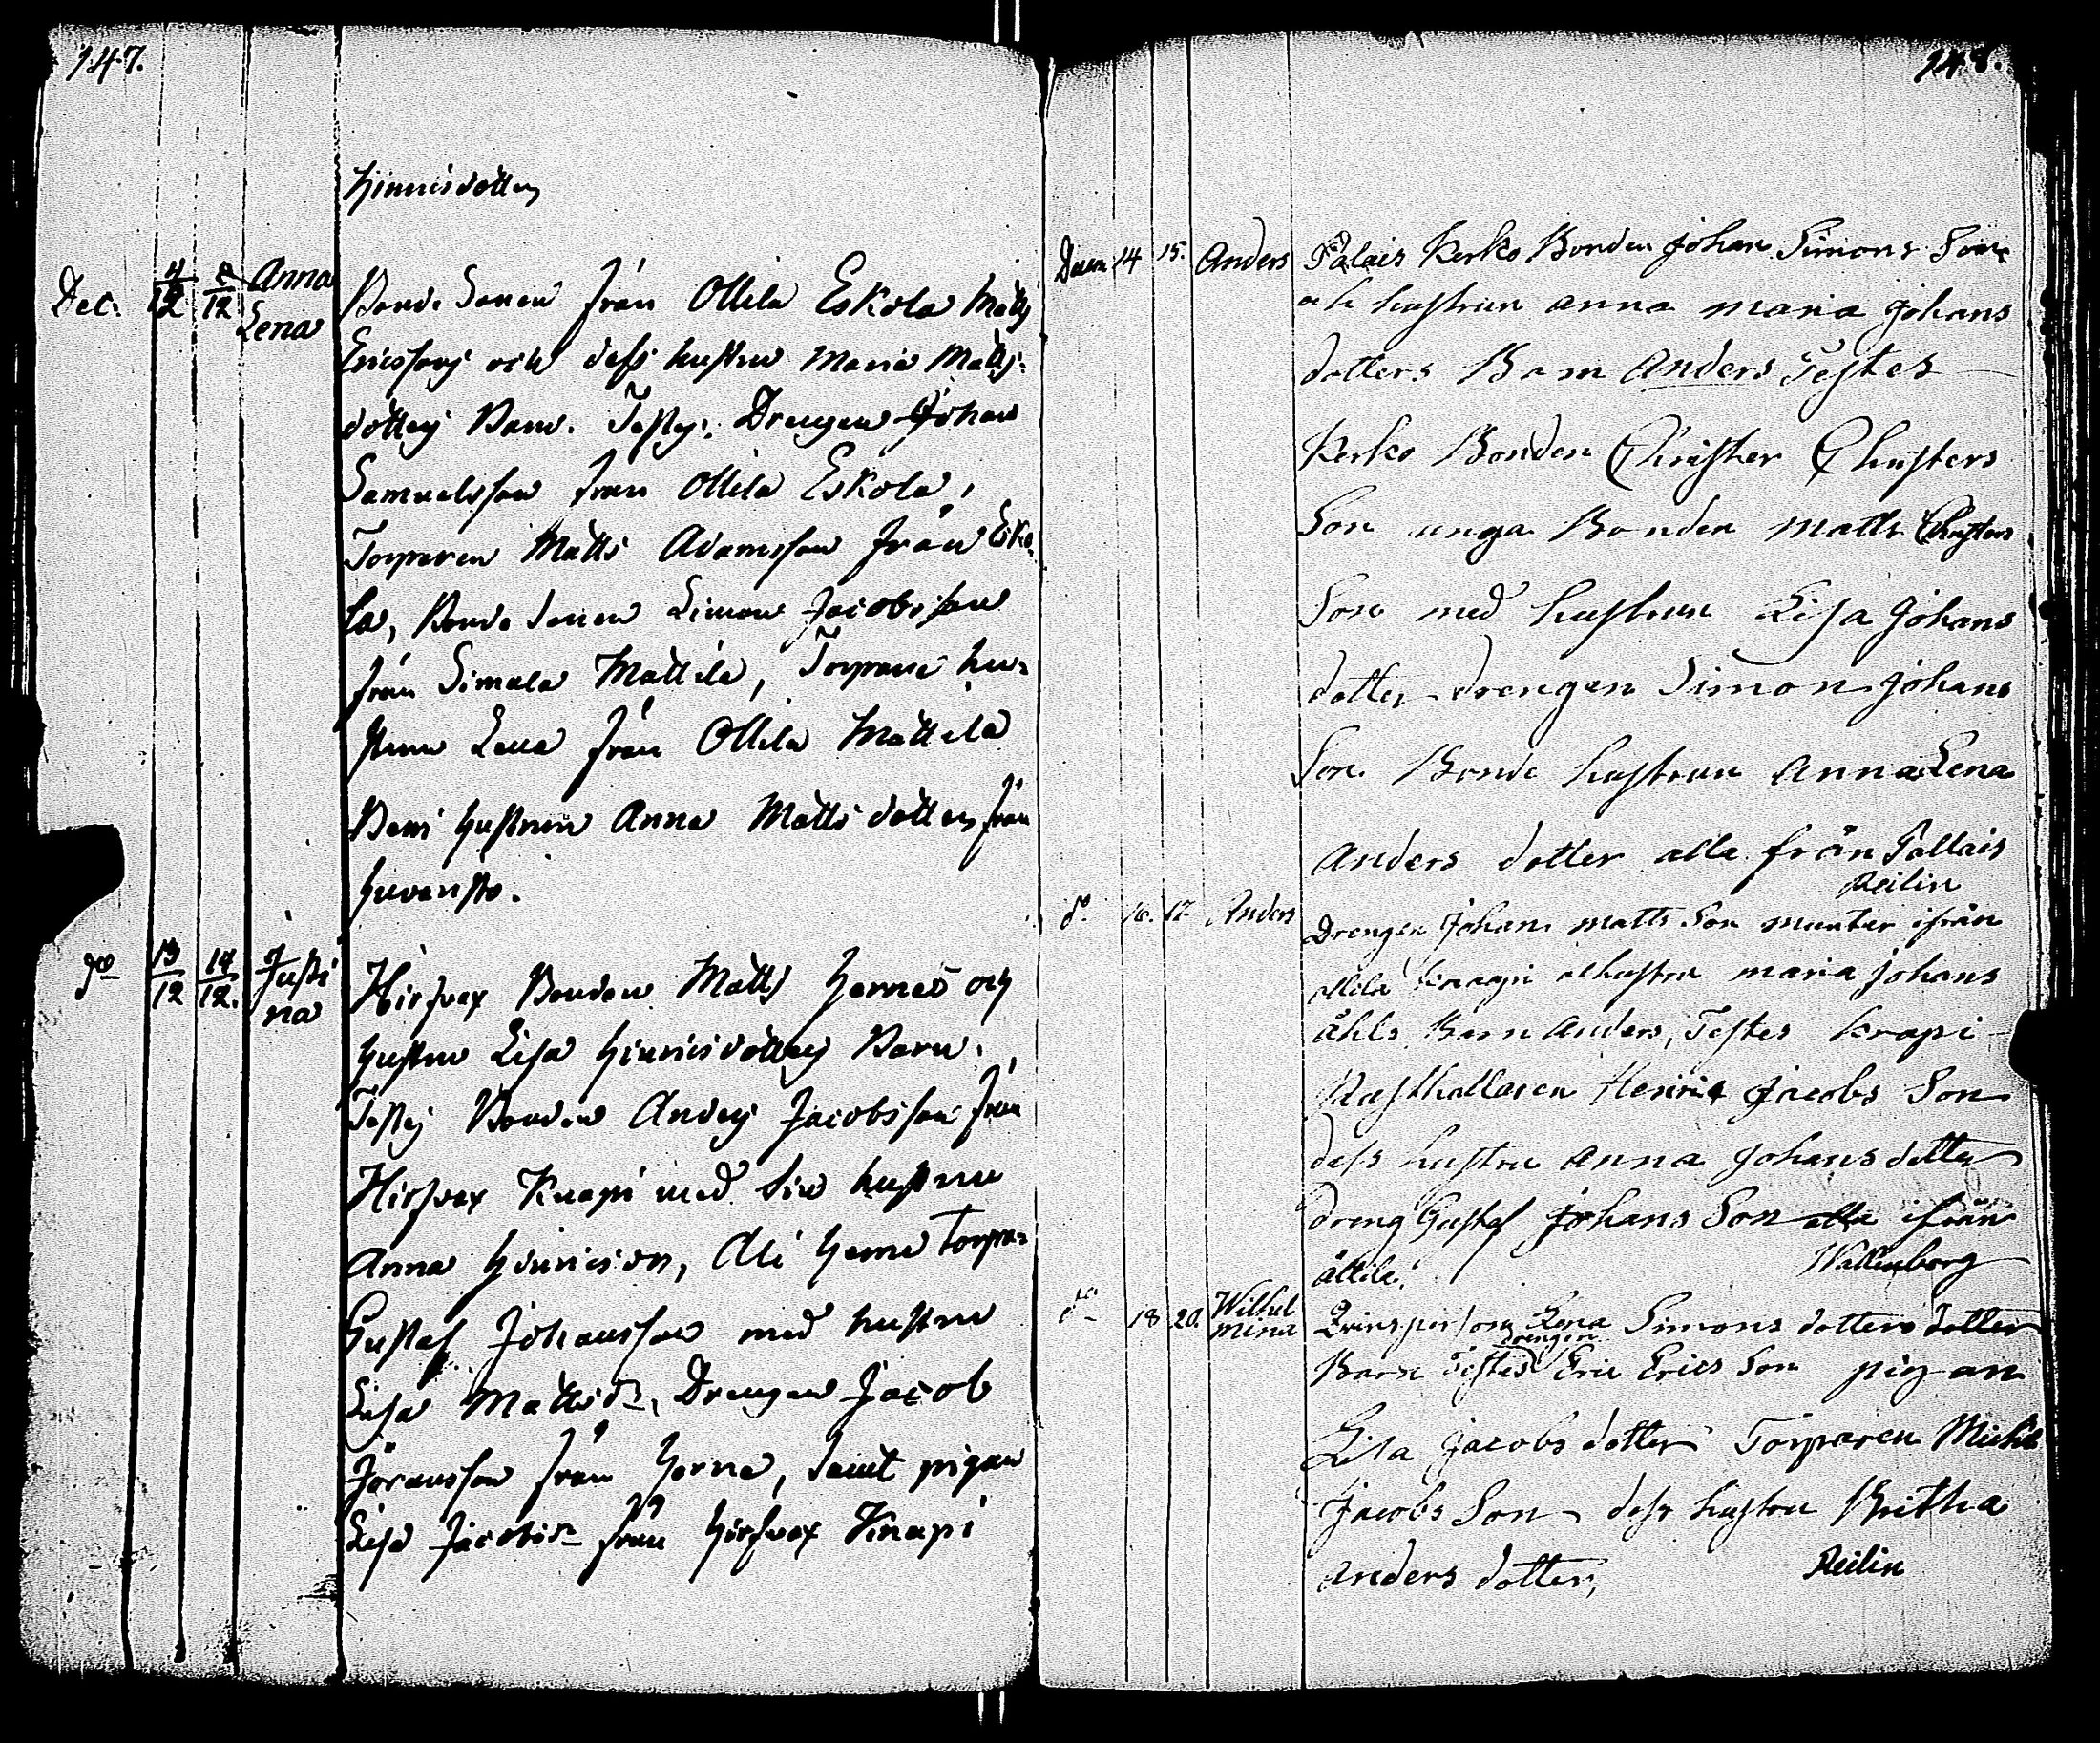 147.
Hinricsdotter
Dec. 4/12 8/12 Anna Lena
Bonde Sonen från Ollila Eskola Matts
Ericssons och dess hustru Maria Matts-
dotters Barn. Testes: Drengen Johan
Samuelsson från Ollila Eskola,
Torparen Matts Adamsson från Esko-
la, Bonde Sonen Simon Jacobsson
från Simala Mattila, Torpare hu-
strun Lena från Ollila Mattila
Bond Hustrun Anna Matts dotter från
Huvensto.
do 13/12 14/12. Justina
Hirfvox Bonden Matts Hernes och
Hustru Lisa Hinricsdotters Barn.
Testes Bonden Anders Jacobsson från
Hirfvox Knapi med sin hustru
Anna Hinricsdr, Herne Torpa-
Gustaf Johansson med hustru
Lisa Mattsdr, Drengen Jacob
Göransson från Herne, samt pigan
Lisa Jacobsdr från Hirfvox Knapi
148.
Decem 14 15. Anders
Palais Kerko Bonden Johan Simons Son
och hustrun anna maria Johans
dotters Barn Anders Testes
Kerko Bonden Christer Christers
Son unga Bonden matts Christers
Son med hustrun Lisa Johans
dotter drengen Simon Johans
Son Bonde hustrun Anna Lena
Anders dotter alla från Pallais
Reilin
do 16. 17. Anders
Drengen Johan matts Son munter ifrån
ollila Knapi och hustru maria Johans
åhls Barn Anders, Testes krapi
Rusthallaren Henric Jacobs Son
dess hustru Anna Johans dotter
dreng Gustaf Johans Son alla ifrån
åttila.
Wallenborg
do 18 20. Wilhelmina
Qvinsperson Lena Simons dotters dotter
Barn Testes drengen Eric Erics Son pigan
Lisa Jacobs dotter Torparen Michel
Jacobs Son dess hustru Britha
Anders dotter,
Reilin